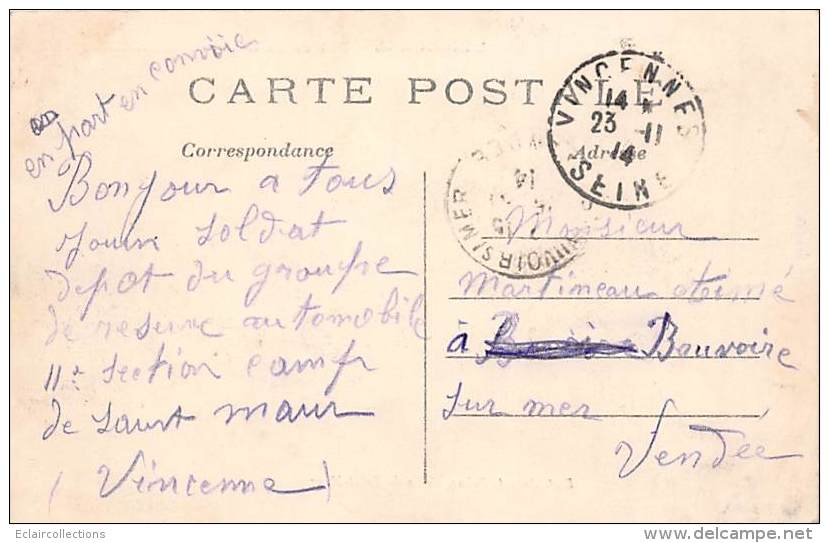 en part en convoie
CARTE POSTALE
Correspondance
Adresse
VINCENNES
14 *
23 -11
14
SEINE
BEAUVOIR S/MER
Bonjour a tous
soldat
depot du groupe
de reserve automobile
11e section camp
de saint maur
(Vincenne)
Monsieur
Martineau Aimé
à Bauvoire
sur mer
Vendée
Eclaircollections
www.delcampe.net